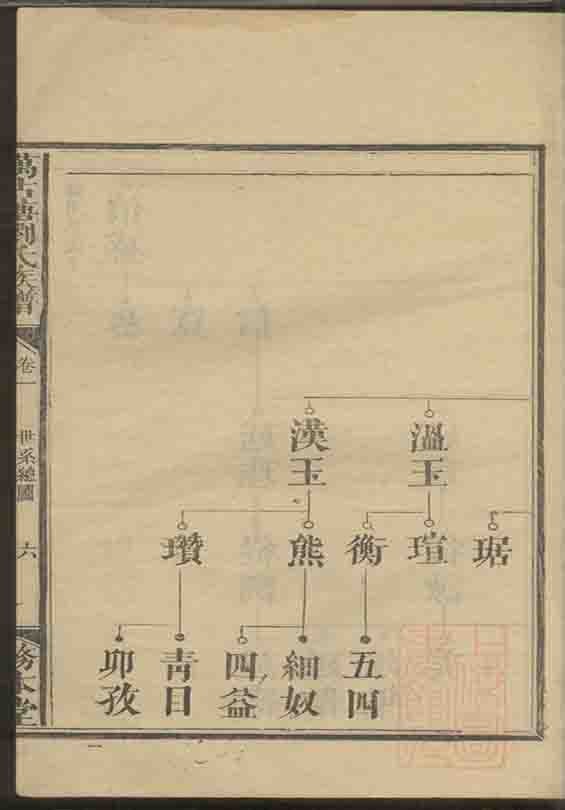 溫玉
漢玉
琚
瑄
衡
熊
瓚
五四
細奴
四益
青目
卯孜
萬古塘劉氏族譜
卷一
世系總圖
六
務本堂